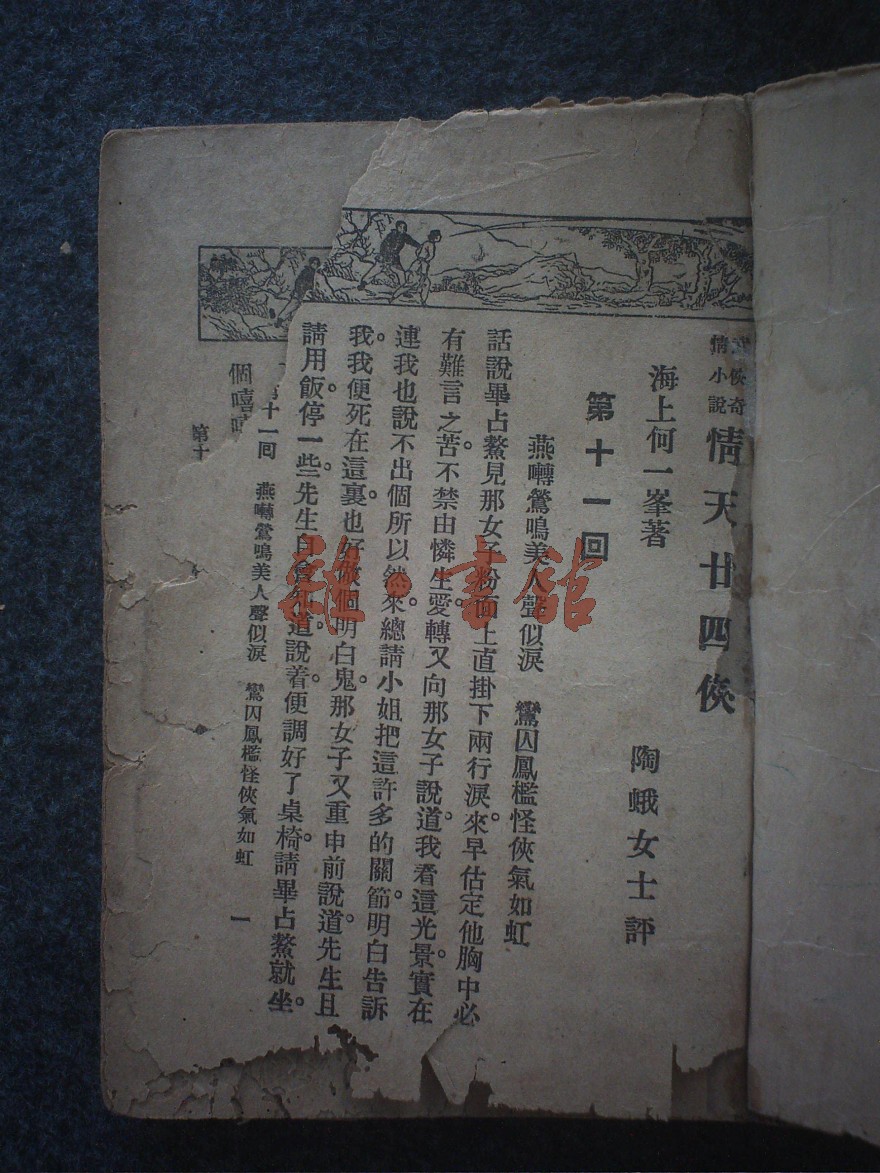 武俠奇
情小說
情天廿四俠
海上何一峯著
陶蛾女士評
第十一回
燕囀鶯鳴美人聲似淚　鸞囚鳳檻怪俠氣如虹
話說畢占鰲見那女子粉面上直掛下兩行淚來。早估定他胸中必
有難言之苦。不禁由憐生愛。轉又向那女子說道。我看這光景。實在
連我也說不出個所以然來。總請小姐把這許多的關節明白告訴
我。我便死在這裏。也好做個明白鬼。那女子又重申前說道。先生且
請用飯。停一些。先生自會知道。說着。便調好了桌椅。請畢占鰲就坐。
十一回　燕囀鶯鳴美人聲似淚　鸞囚鳳檻怪俠氣如虹　一
個嘻
第十
雜·書館